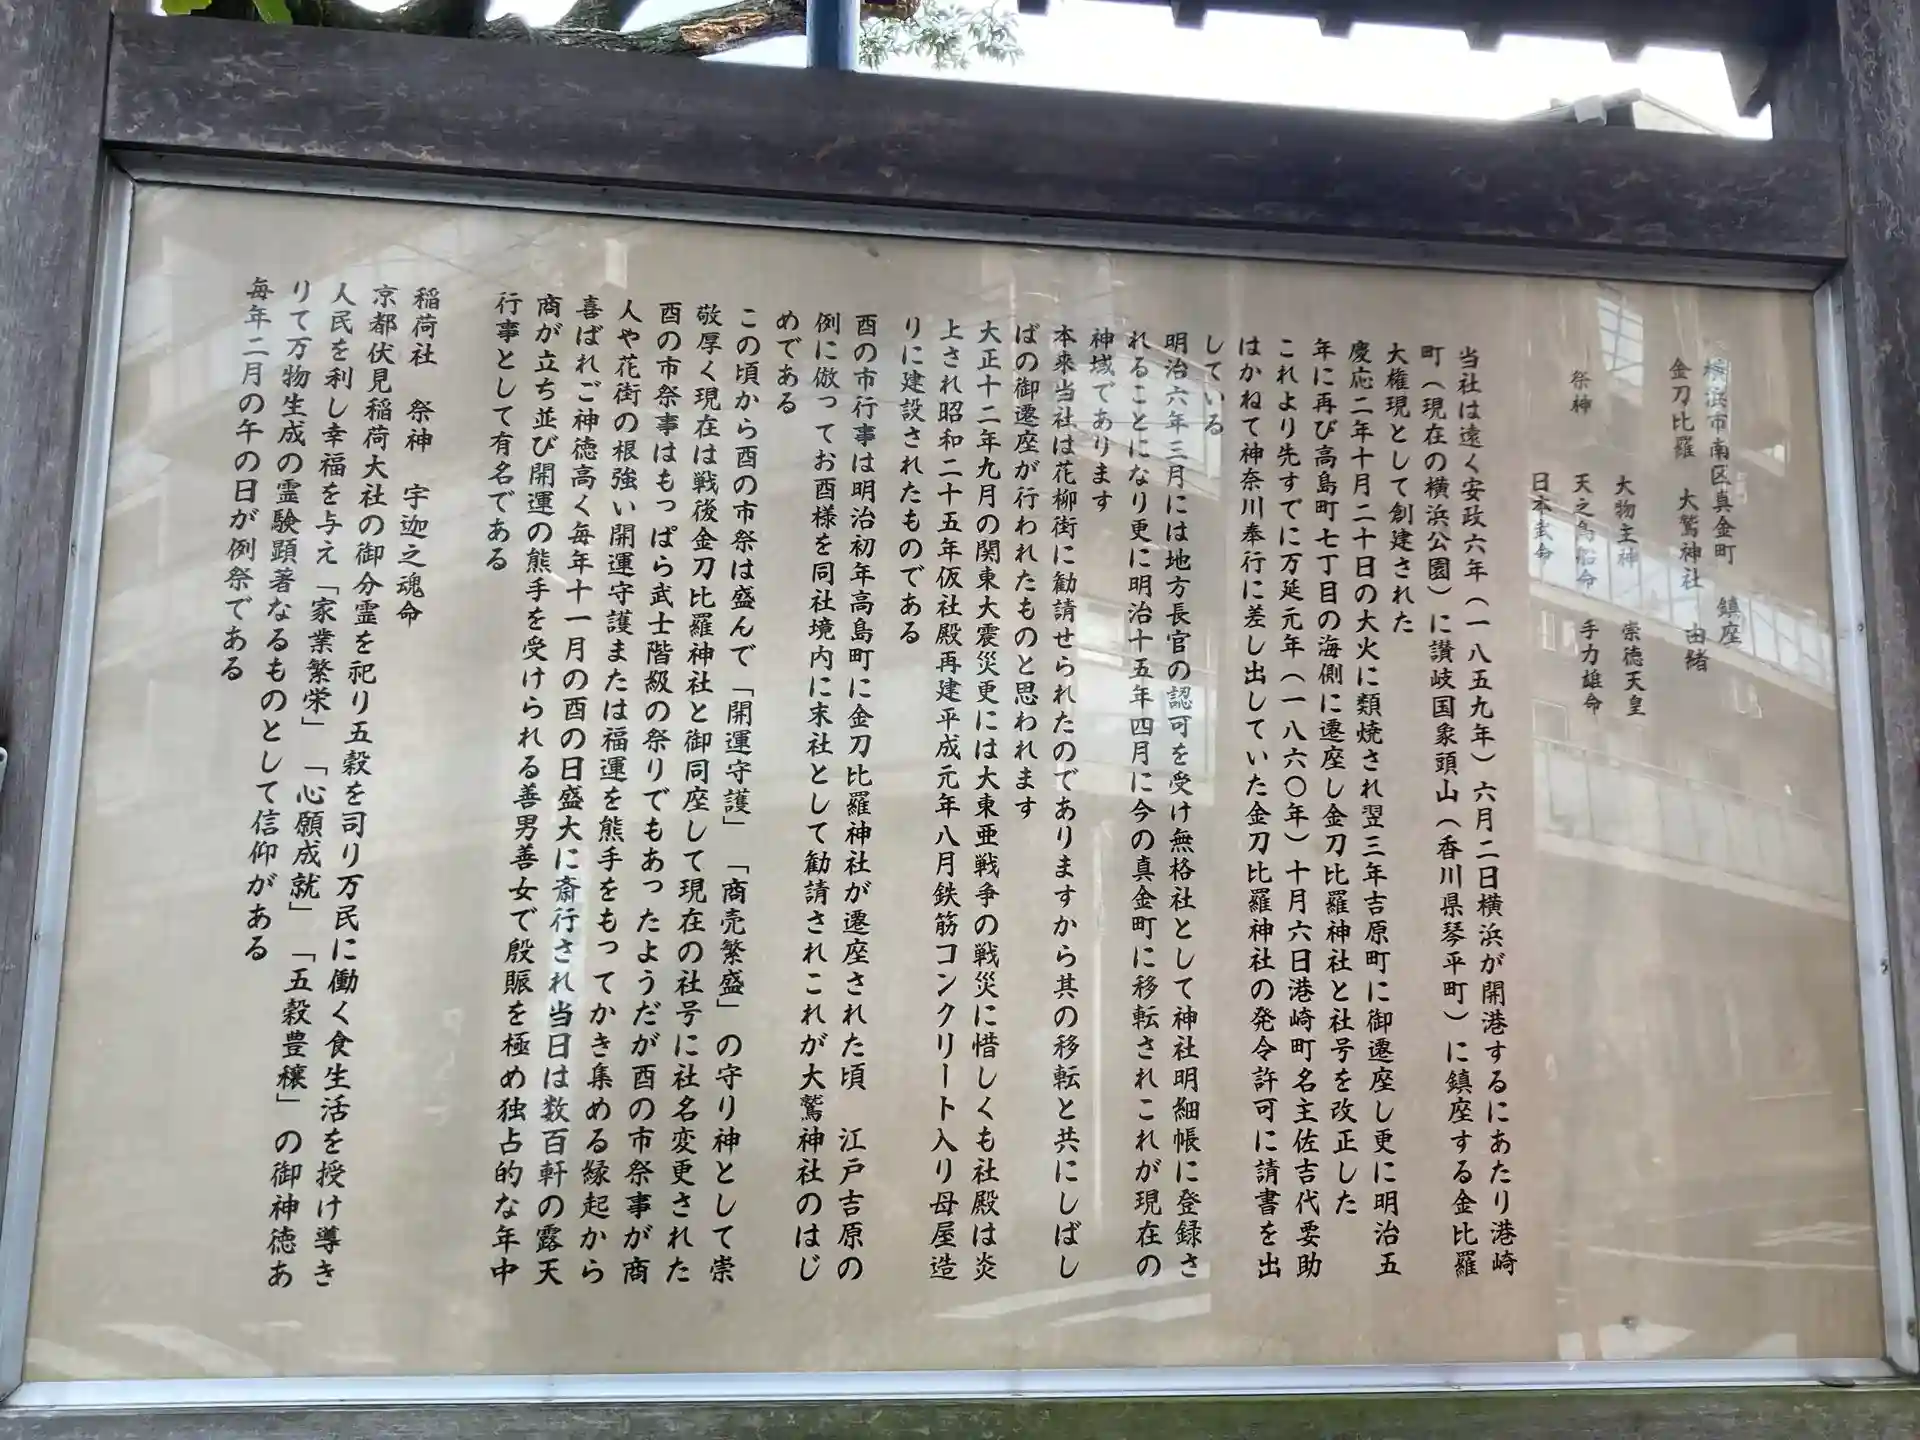 横浜市南区真金町　鎮座
金刀比羅　大鷲神社　由緒
大物主神　崇徳天皇
祭神　天之鳥船命　手力雄命
日本武命
当社は遠く安政六年（一八五九年）六月二日横浜が開港するにあたり港崎
町（現在の横浜公園）に讃岐国象頭山（香川県琴平町）に鎮座する金比羅
大権現として創建された
慶応二年十月二十日の大火に類焼され翌三年吉原町に御遷座し更に明治五
年に再び高島町七丁目の海側に遷座し金刀比羅神社と社号を改正した
これより先すでに万延元年（一八六〇年）十月六日港崎町名主佐吉代要助
はかねて神奈川奉行に差し出していた金刀比羅神社の発令許可に請書を出
している
明治六年三月には地方長官の認可を受け無格社として神社明細帳に登録さ
れることになり更に明治十五年四月に今の真金町に移転されこれが現在の
神域であります
本来当社は花柳街に勧請せられたのでありますから其の移転と共にしばし
ばの御遷座が行われたものと思われます
大正十二年九月の関東大震災更には大東亜戦争の戦災に惜しくも社殿は炎
上され昭和二十五年仮社殿再建平成元年八月鉄筋コンクリート入り母屋造
りに建設されたものである
酉の市行事は明治初年高島町に金刀比羅神社が遷座された頃　江戸吉原の
例に倣ってお酉様を同社境内に末社として勧請されこれが大鷲神社のはじ
めである
この頃から酉の市祭は盛んで「開運守護」「商売繁盛」の守り神として崇
敬厚く現在は戦後金刀比羅神社と御同座して現在の社号に社名変更された
酉の市祭事はもっぱら武士階級の祭りでもあったようだが酉の市祭事が商
人や花街の根強い開運守護または福運を熊手をもってかき集める縁起から
喜ばれご神徳高く毎年十一月の酉の日盛大に斎行され当日は数百軒の露天
商が立ち並び開運の熊手を受けられる善男善女で殷賑を極め独占的な年中
行事として有名である
稲荷社　祭神　宇迦之魂命
京都伏見稲荷大社の御分霊を祀り五穀を司り万民に働く食生活を授け導き
人民を利し幸福を与え「家業繁栄」「心願成就」「五穀豊穣」の御神徳あ
りて万物生成の霊験顕著なるものとして信仰がある
毎年二月の午の日が例祭である